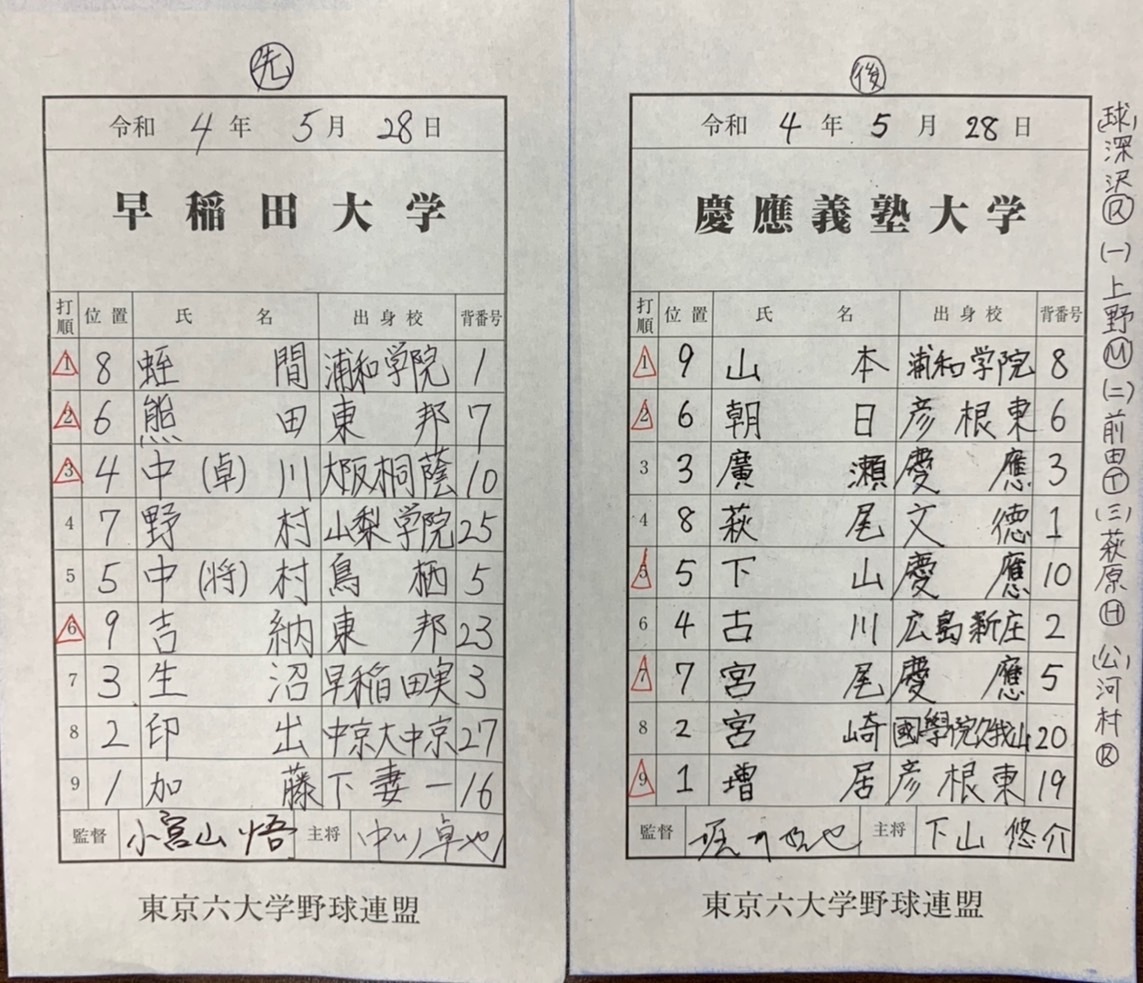 先
令和 4 年 5 月 28 日
早稲田大学
打順 位置 氏名 出身校 背番号
1 8 蛭間 浦和学院 1
2 6 熊田 東邦 7
3 4 中(卓)川 大阪桐蔭 10
4 7 野村 山梨学院 25
5 5 中(将)村 鳥栖 5
6 9 吉納 東邦 23
7 3 生沼 早稲田実 3
8 2 印出 中京大中京 27
9 1 加藤 下妻一 16
監督 小宮山 悟 主将 中川 卓也
東京六大学野球連盟
後
令和 4 年 5 月 28 日
慶應義塾大学
打順 位置 氏名 出身校 背番号
1 9 山本 浦和学院 8
2 6 朝日 彦根東 6
3 3 廣瀬 慶應 3
4 8 萩尾 文徳 1
5 5 下山 慶應 10
6 4 古川 広島新庄 2
7 7 宮尾 慶應 5
8 2 宮崎 國學院久我山 20
9 1 増居 彦根東 19
監督 堀井哲也 主将 下山 悠介
東京六大学野球連盟
(球)深沢Ⓡ(一)上野Ⓜ(二)前田Ⓣ(三)萩原Ⓗ(公)河村Ⓚ